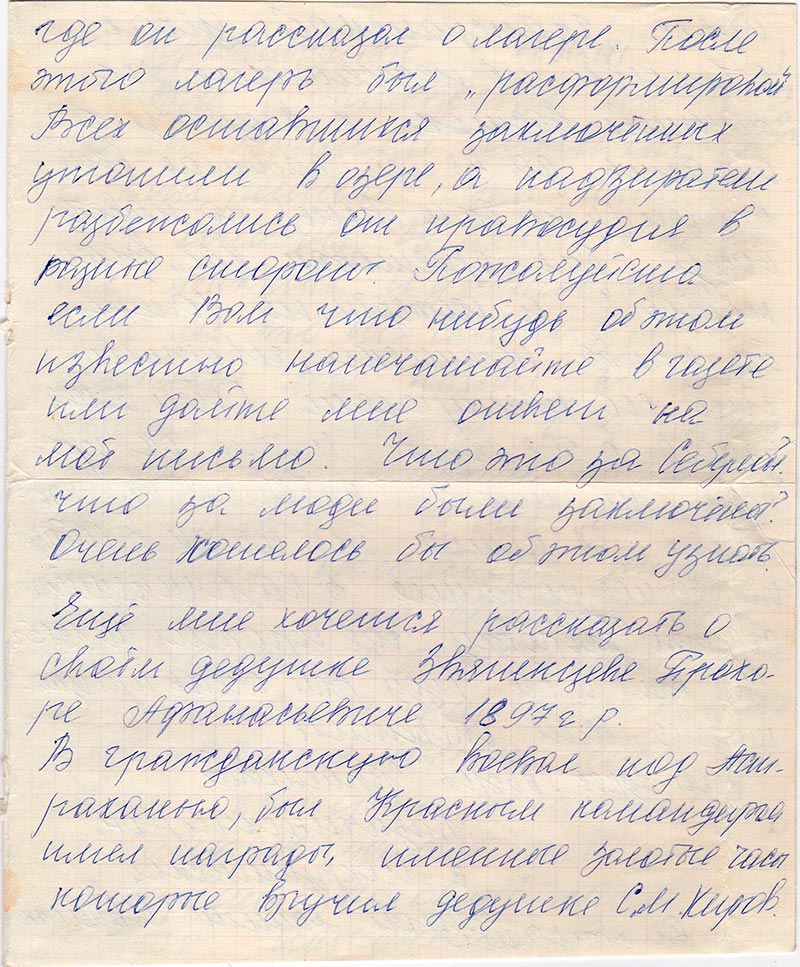 где он рассказал о лагере. После
этого лагерь был „расформирован"
Всех оставшихся заключённых
утопили в озере, а надзиратели
разбежались от правосудия в
разные стороны. Пожалуйста
если Вам что нибудь об этом
известно напечатайте в газете
или дайте мне ответ на
моё письмо. Что это за
что за люди были заключены?
Очень хотелось бы об этом узнать.
Ещё мне хочется рассказать о
своём дедушке Звягинцеве Прохо-
ре Афанасьевиче 1897 г. р.
В гражданскую воевал под Аст-
раханью, был Красным командиром
имел награды, именные золотые часы
которые вручил дедушке С.М. Киров.